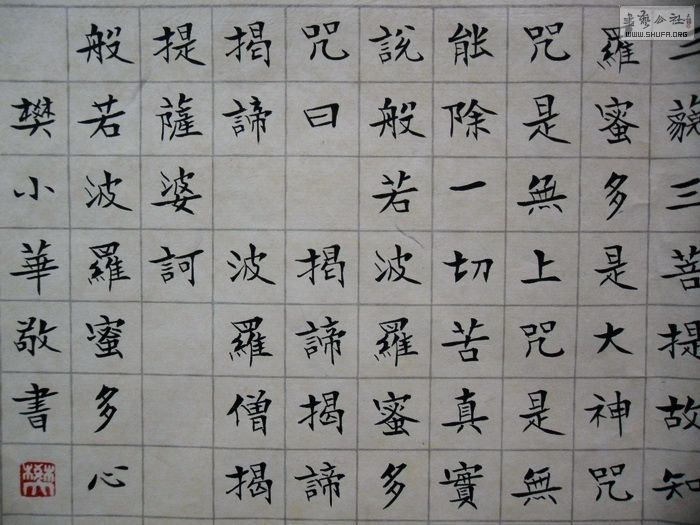 三藐三菩提故知
羅蜜多是大神咒
咒是無上咒是無
能除一切苦真實
說般若波羅蜜多
咒曰 揭諦揭諦
揭諦 波羅僧揭
提薩婆訶
般若波羅蜜多心
樊小華敬書
WWW.SHUFA.ORG